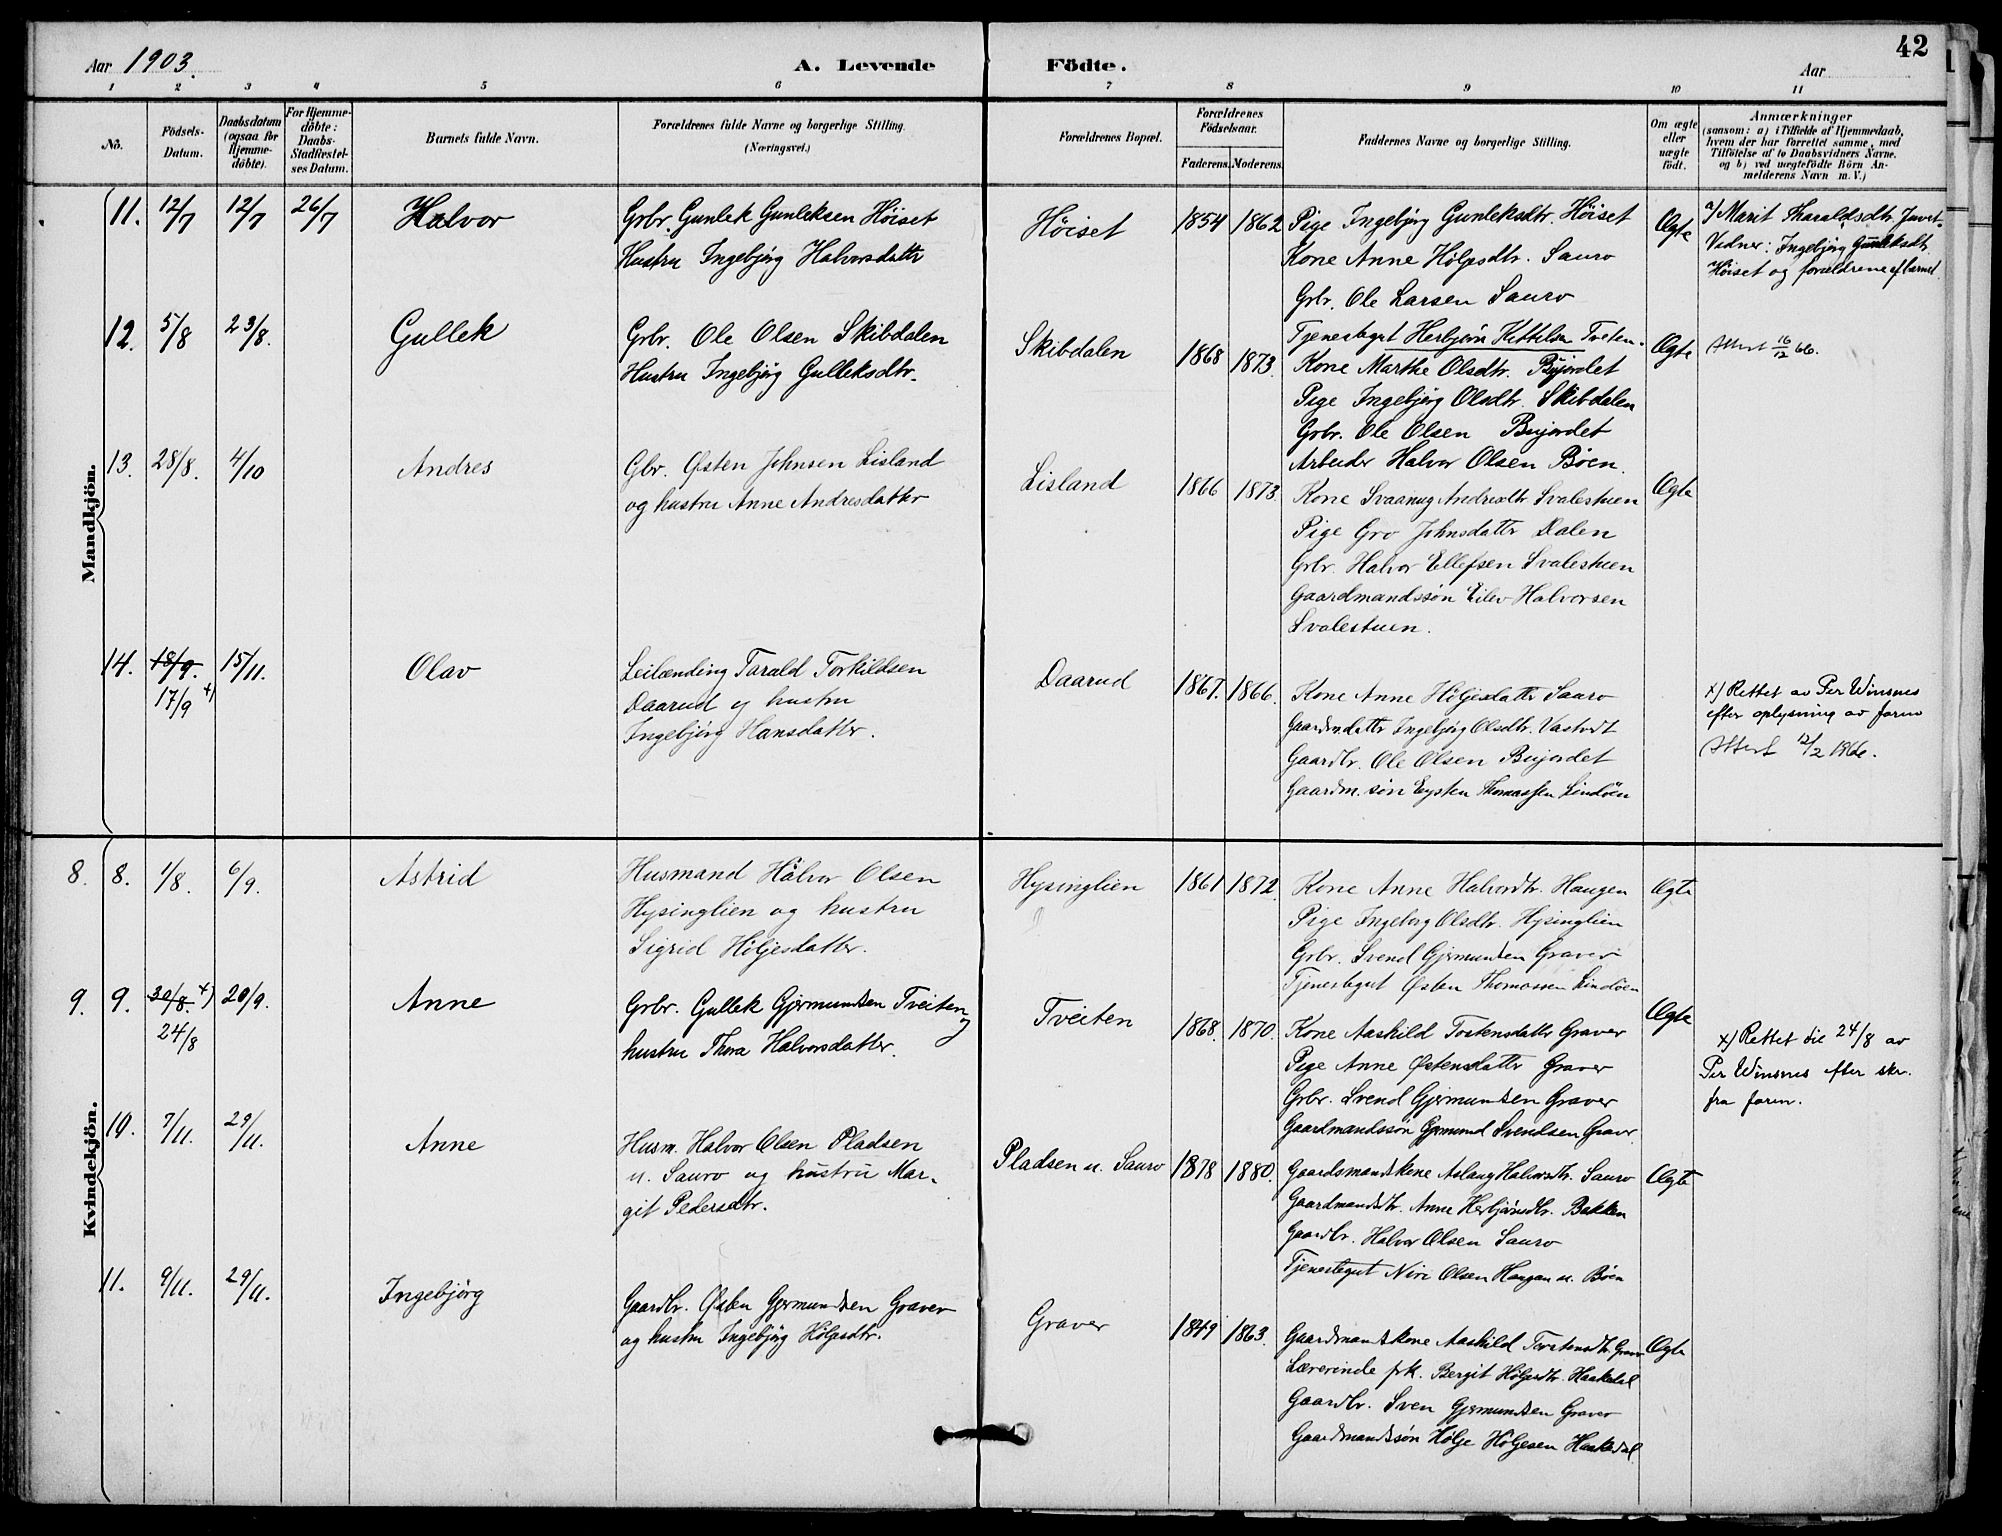 42
Aar 1903.
A. Levende Födte.
Aar
1 2 3 4 5 6 7 8 9 10 11
No.
Födsels-Datum.
Daabsdatum (ogsaa for Hjemme-döbte).
For Hjemme-döbte: Daabs-Stadfæstel-ses Datum.
Barnets fulde Navn.
Forældrenes fulde Navne og borgerlige Stilling. (Næringsvei.)
Forældrenes Bopæl.
Forældrenes Födselsaar.
Faderens. Moderens.
Faddernes Navne og borgerlige Stilling.
Om ægte eller uægte født.
Anmærkninger
(saasom: a) i Tilfælde af Hjemmedaab,
hvem der har forrettet samme, med
Tilföielse af to Daabsvidners Navne.
og b) ved uægtefödte Börn An-
melderens Navn m. V.)
Mandkjön.
11. 12/7 12/7 26/7 Halvor
Grbr. Gunlek Gunleksen Höiset
Hustru Ingebjörg Halvorsdatter
Höiset 1854 1862
Pige Ingebjörg Gunleksdtr. Höiset
Kone Anne Hölgesdtr. Sauro
Grbr. Ole Larsen Sauro
Ægte
a/ Marit Tharaldsdtr. Juvet.
Vidner: Ingebjörg Gunleksdtr.
Höiset og forældrene af barnet
12. 5/8 23/8. Gullek
Grbr. Ole Olsen Skibdalen
Hustru Ingebjörg Gulleksdtr.
Skibdalen 1868 1873.
Tjenestegut Herbjörn Kittelsen Tveten.
Kone Marthe Olsdtr. Bujordet
Pige Ingebjörg Olsdtr. Skibdalen
Grbr. Ole Olsen Bujordet
Arbeider Halvor Olsen Böen.
Ægte
Attest 16/12 66.
13. 28/8. 4/10 Andres
Gbr. Østen Johnsen Lisland
og hustru Anne Andresdatter
Lisland 1866 1873
Kone Svaanug Andresdtr Svalestuen
Pige Gro Johnsdatter Dalen
Grbr. Halvor Ellefsen Svalestuen
Gaardmandssön Eilev Halvorsen
Svalestuen.
Ægte
14. 18/9. 15/11. Olav
17/9 x)
Leilænding Tarald Torkildsen
Daarud og hustru
Ingebjörg Hansdatter.
Daarud 1867. 1866.
Kone Anne Höljesdatter Sauro
Gaardm.datter Ingebjörg Olsdtr. Vastvdt
Gaardbr. Ole Olsen Bujordet
Gaardm. sön Eysten Thomassen Lindöen
x) Rettet av Per Winsnes
efter oplysning av foren
Attest 12/2
Kvindekjön.
8. 8. 1/8. 6/9. Astrid
Husmand Halvor Olsen
Hysinglien og hustru
Sigrid Höljesdatter.
Hysinglien 1861 1872.
Kone Anne Halvordtr. Haugen
Pige Ingeborg Olsdtr. Hysinglien
Grbr. Svend Gjermundsen Graver
Tjenestegut Østen Thomassen Lindöen
Ægte
9. 9. 30/8. x) 20/9. Anne
24/8
Grbr. Gullek Gjermundsen Tveiten og
hustru Thora Halvorsdatter.
Tveiten 1868. 1870.
Kone Aashild Tostensdatter Graver
Pige Anne Østensdatter Graver
Grbr. Svend Gjermundsen Graver
Gaardmandssön Gjermund Svendsen Graver
Ægte
x) Rettet til 24/8 av
Per Winsnes efter skr.
fra foren.
10. 7/11. 29/11. Anne
Husm. Halvor Olsen Pladsen
u. Sauro og hustru Mar-
git Pedersdtr.
Pladsen u. Sauro 1878 1880.
Gaardsmandskone Aslaug Halvorsdtr. Sauro
Gaardmandsdtr. Anne Herbjörnsdtr. Bakken
Gaardbr. Halvor Olsen Sauro
Tjenestegut Niri Olsen Haugan u. Böen
Ægte
11. 9/11. 29/11. Ingebjörg
Gaardbr. Østen Gjermundsen Graver
og hustru Ingebjörg Hölgesdtr.
Graver 1849 1863.
Gaardmandskone Aashild Torstensdtr. Graver
Lærerinde frk. Bergit Hölgesdtr. Haakedal
Gaardbr. Sven Gjermundsen Graver
Gaardmandssön Hölje Höljesen Haakedal
Ægte